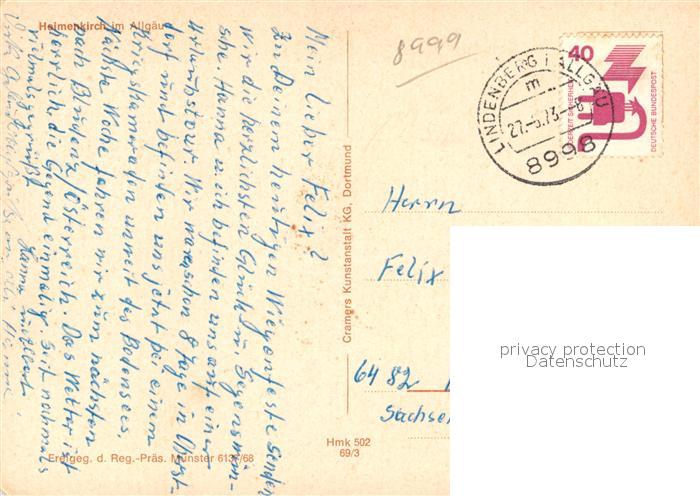 Heimenkirch im Allgäu
Mein lieber Felix!
Zu Deinem heutigen Wiegenfeste senden
wir die herzlichsten Glück u. Segenswün-
sche. Hanna u. ich befinden uns auf einer
Urlaubstour. Wir waren schon 8 Tage in Obst-
dorf und befinden uns jetzt bei einem
Kriegskameraden unweit des Bodensees.
Nächste Woche fahren wir zum nächsten
nach Bludenz/Österreich. Das Wetter ist
herrlich, die Gegend einmalig. Seit nochmals
vielmals gegrüßt
Hanna
Erofgeg. d. Reg.-Präs. Münster 613/68
Cramers Kunstanstalt KG, Dortmund
Hmk 502
69/3
8999
LINDENBERG i ALLGÄU
m
27.-5.73.-8
8998
40
JEDERZEIT SICHERHEIT
DEUTSCHE BUNDESPOST
Herrn
Felix
6482
Sachse
privacy protection
Datenschutz